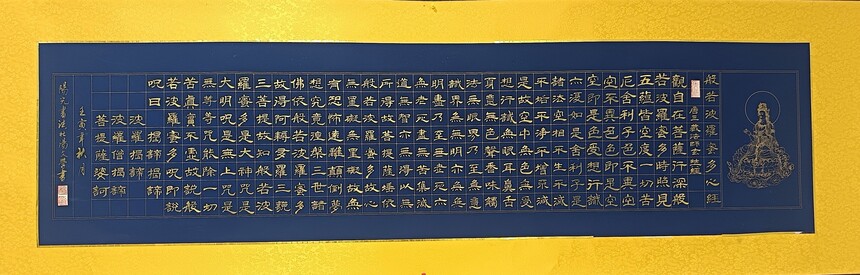 般若波羅蜜多心經
唐三藏法師玄奘譯
觀自在菩薩行深般
若波羅蜜多時照見
五蘊皆空度一切苦
厄舍利子色不異空
空不異色色即是空
空即是色受想行識
亦復如是舍利子是
諸法空相不生不滅
不垢不淨不增不減
是故空中無色無受
想行識無眼耳鼻舌
身意無色聲香味觸
法無眼界乃至無意
識界無無明亦無無
明盡乃至無老死亦
無老死盡無苦集滅
道無智亦無得以無
所得故菩提薩埵依
般若波羅蜜多故心
無罣礙無罣礙故無
有恐怖遠離顛倒夢
想究竟涅槃三世諸
佛依般若波羅蜜多
故得阿耨多羅三藐
三菩提故知般若波
羅蜜多是大神咒是
大明咒是無上咒是
無等等咒能除一切
苦真實不虛故說般
若波羅蜜多咒即說
咒曰 揭諦揭諦
波羅揭諦
波羅僧揭諦
菩提薩婆訶
壬寅年秋月